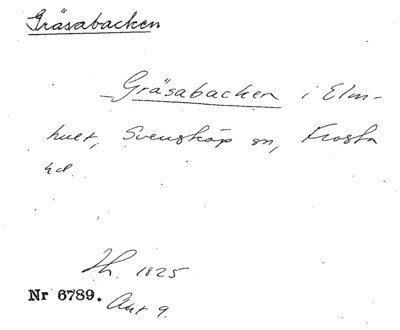 Gräsabacken
Gräsabacken i Elm-
hult, Svensköp sn, Frosta
hd.
Lh. 1825
Nr 6789. Akt 9.